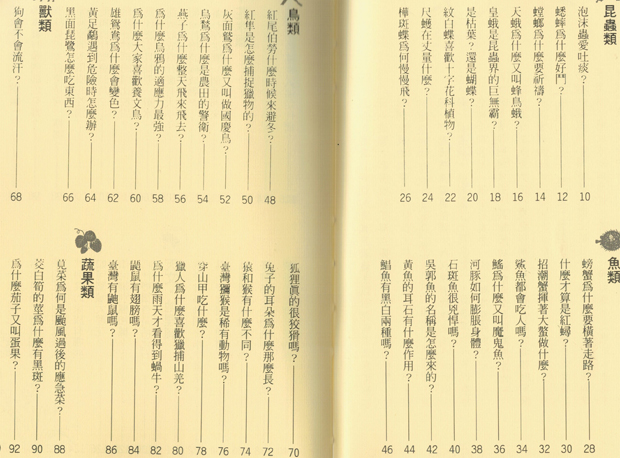 昆蟲類
泡沫蟲愛吐痰？ 10
蟋蟀爲什麼好鬥？ 12
螳螂爲什麼要祈禱？ 14
天蛾爲什麼又叫蜂鳥蛾？ 16
皇蛾是昆蟲界的巨無霸？ 18
是枯葉？還是蝴蝶？ 20
紋白蝶喜歡十字花科植物？ 22
尺蠖在丈量什麼？ 24
樺斑蝶爲何慢慢飛？ 26
魚類
螃蟹爲什麼要橫著走路？ 28
什麼才算是紅蟳？ 30
招潮蟹揮著大螯做什麼？ 32
鯊魚都會吃人嗎？ 34
鱝爲什麼又叫魔鬼魚？ 36
河豚如何膨脹身體？ 38
石斑魚很兇悍嗎？ 40
吳郭魚的名稱是怎麼來的？ 42
黃魚的耳石有什麼作用？ 44
鯧魚有黑白兩種嗎？ 46
鳥類
紅尾伯勞什麼時候來避冬？ 48
紅隼是怎麼捕捉獵物的？ 50
灰面鷲爲什麼又叫做國慶鳥？ 52
烏鶖爲什麼是農田的警衛？ 54
燕子爲什麼整天飛來飛去？ 56
爲什麼烏鴉的適應力最強？ 58
爲什麼大家喜歡養文鳥？ 60
雄鴛鴦爲什麼會變色？ 62
黃足鷸遇到危險時怎麼辦？ 64
黑面琵鷺怎麼吃東西？ 66
獸類
狗會不會流汗？ 68
狐狸眞的很狡猾嗎？ 70
兔子的耳朵爲什麼那麼長？ 72
猿和猴有什麼不同？ 74
臺灣獼猴是稀有動物嗎？ 76
穿山甲吃什麼？ 78
獵人爲什麼喜歡獵捕山羌？ 80
爲什麼雨天才看得到蝸牛？ 82
鼯鼠有翅膀嗎？ 84
臺灣有鼴鼠嗎？ 86
蔬果類
莧菜爲何是颱風過後的應急菜？ 88
茭白筍的莖爲什麼有黑斑？ 90
爲什麼茄子又叫蛋果？ 92